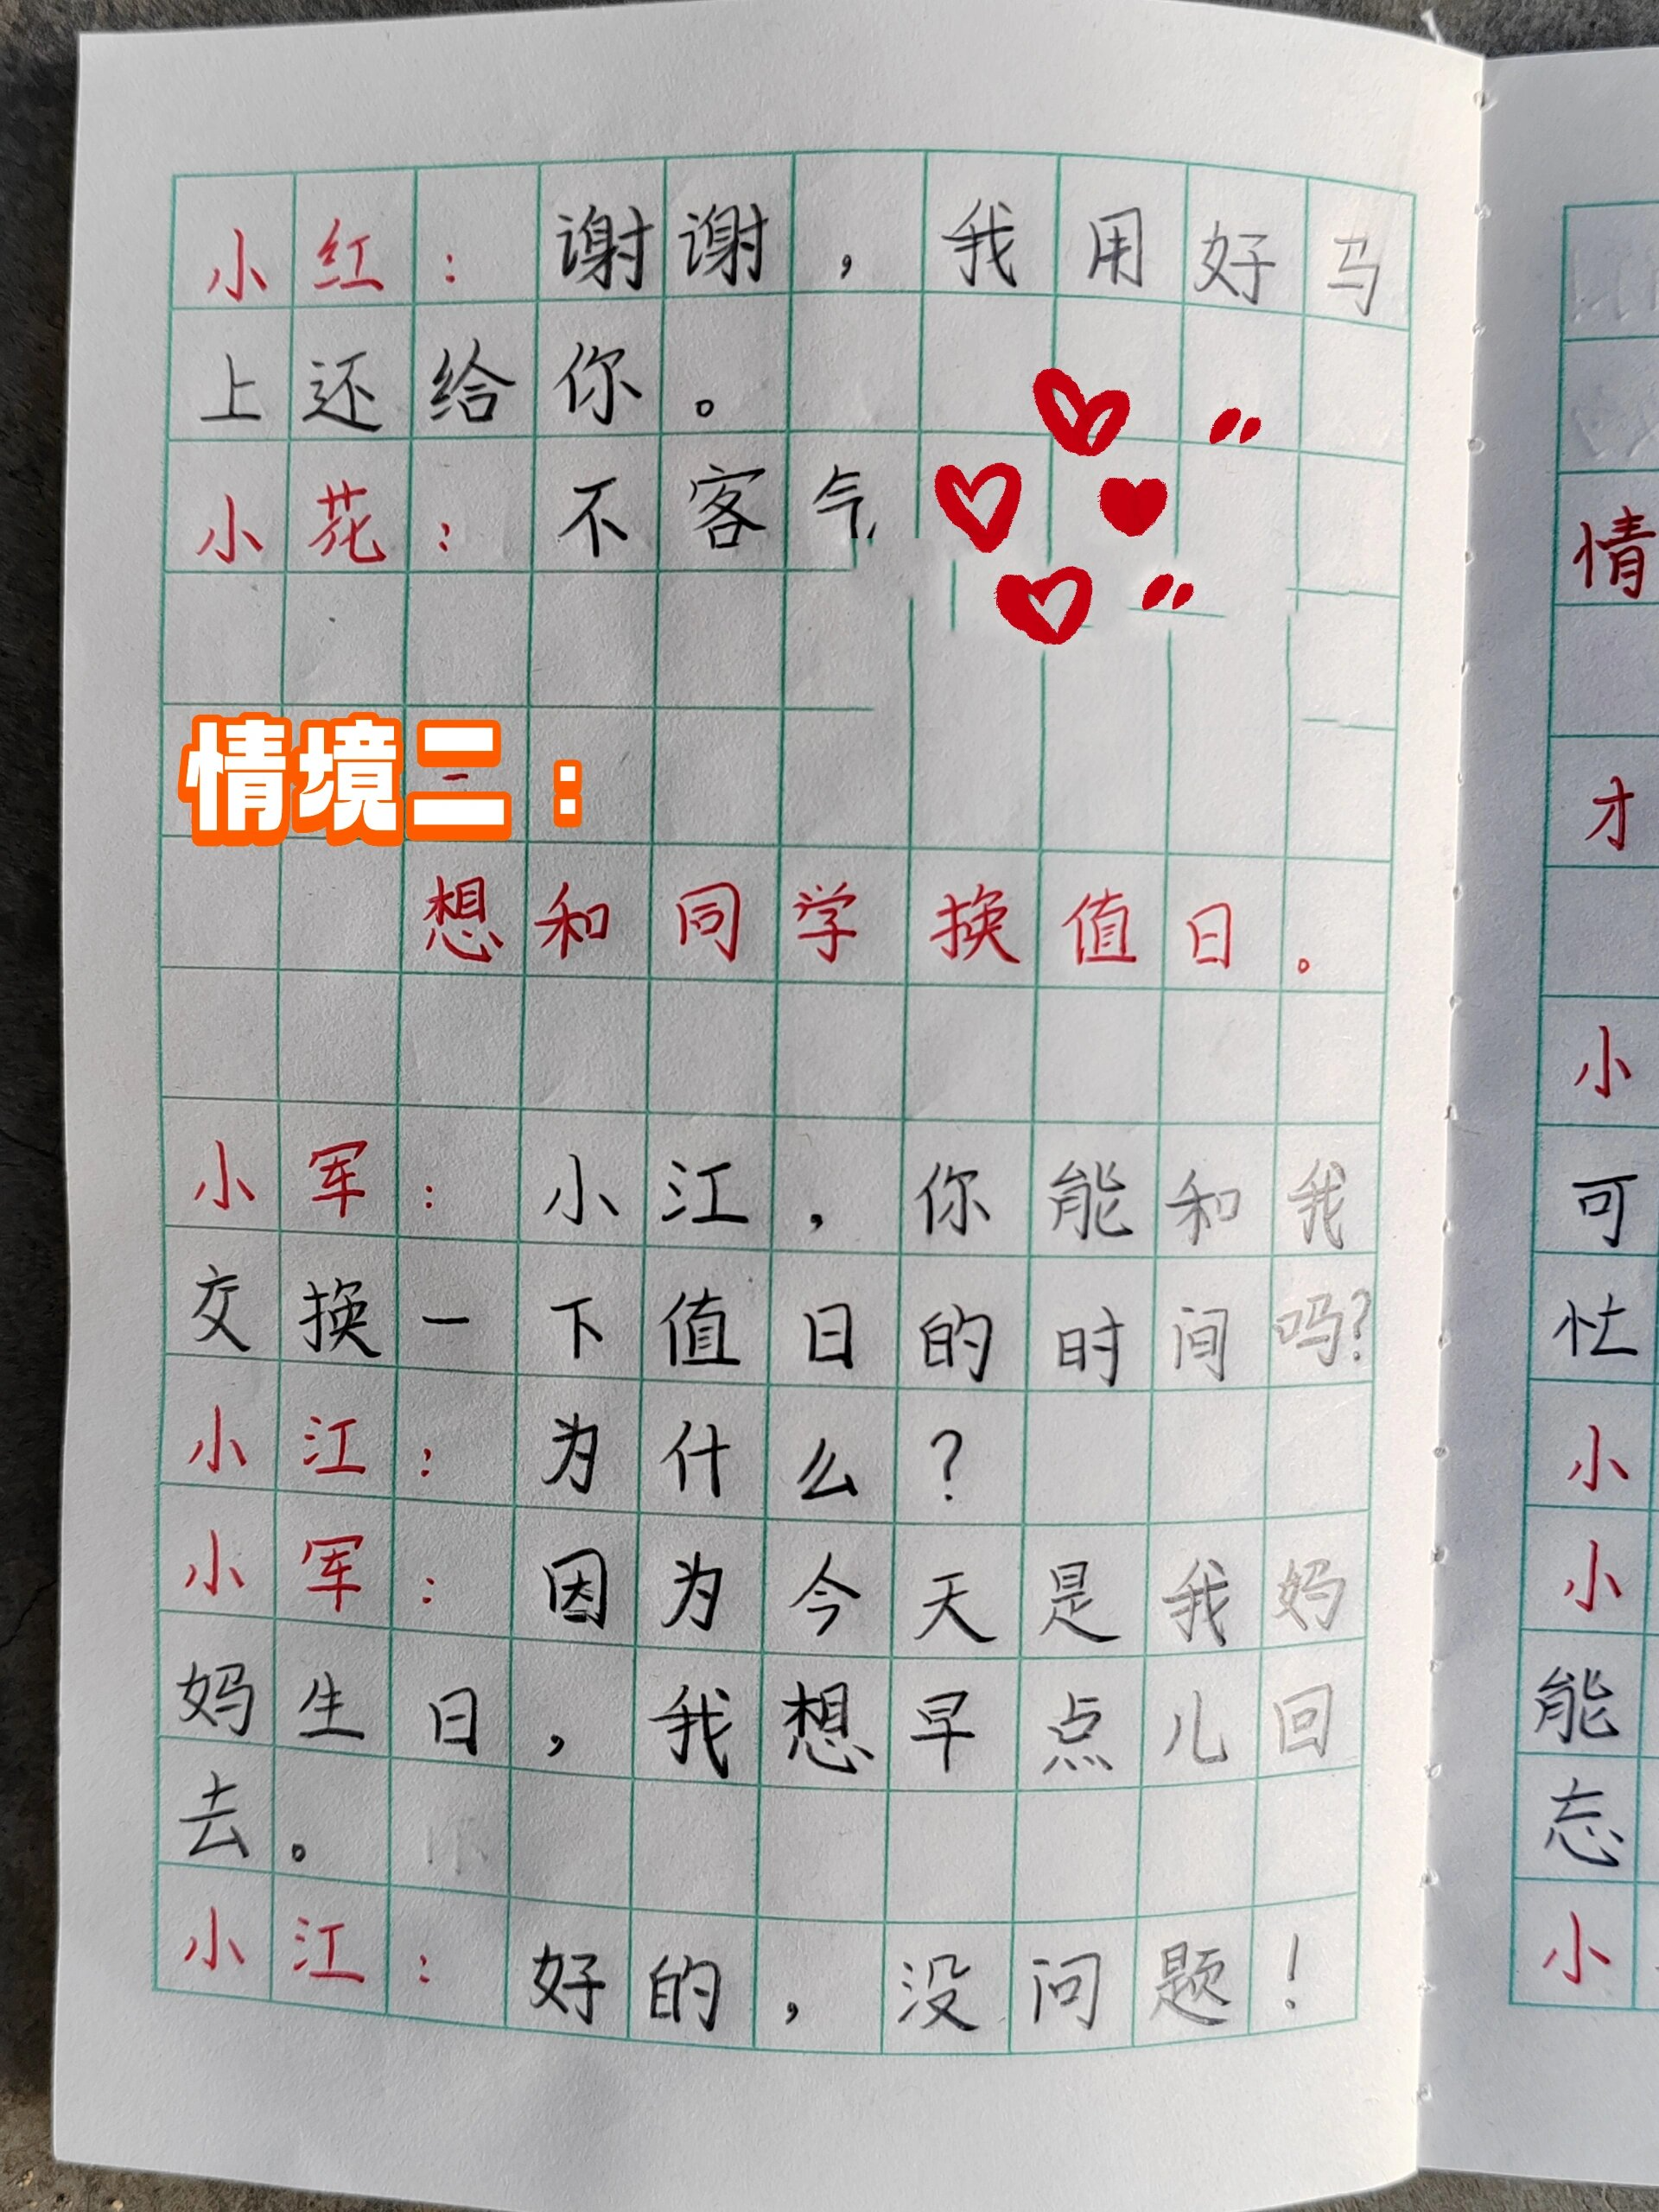 小红：谢谢，我用好马
上还给你。
小花：不客气
情境二：
想和同学换值日。
小军：小江，你能和我
交换一下值日的时间吗？
小江：为什么？
小军：因为今天是我妈
妈生日，我想早点儿回
去。
小江：好的，没问题！
情
才
小
可
忙
小
小
能
忘
小